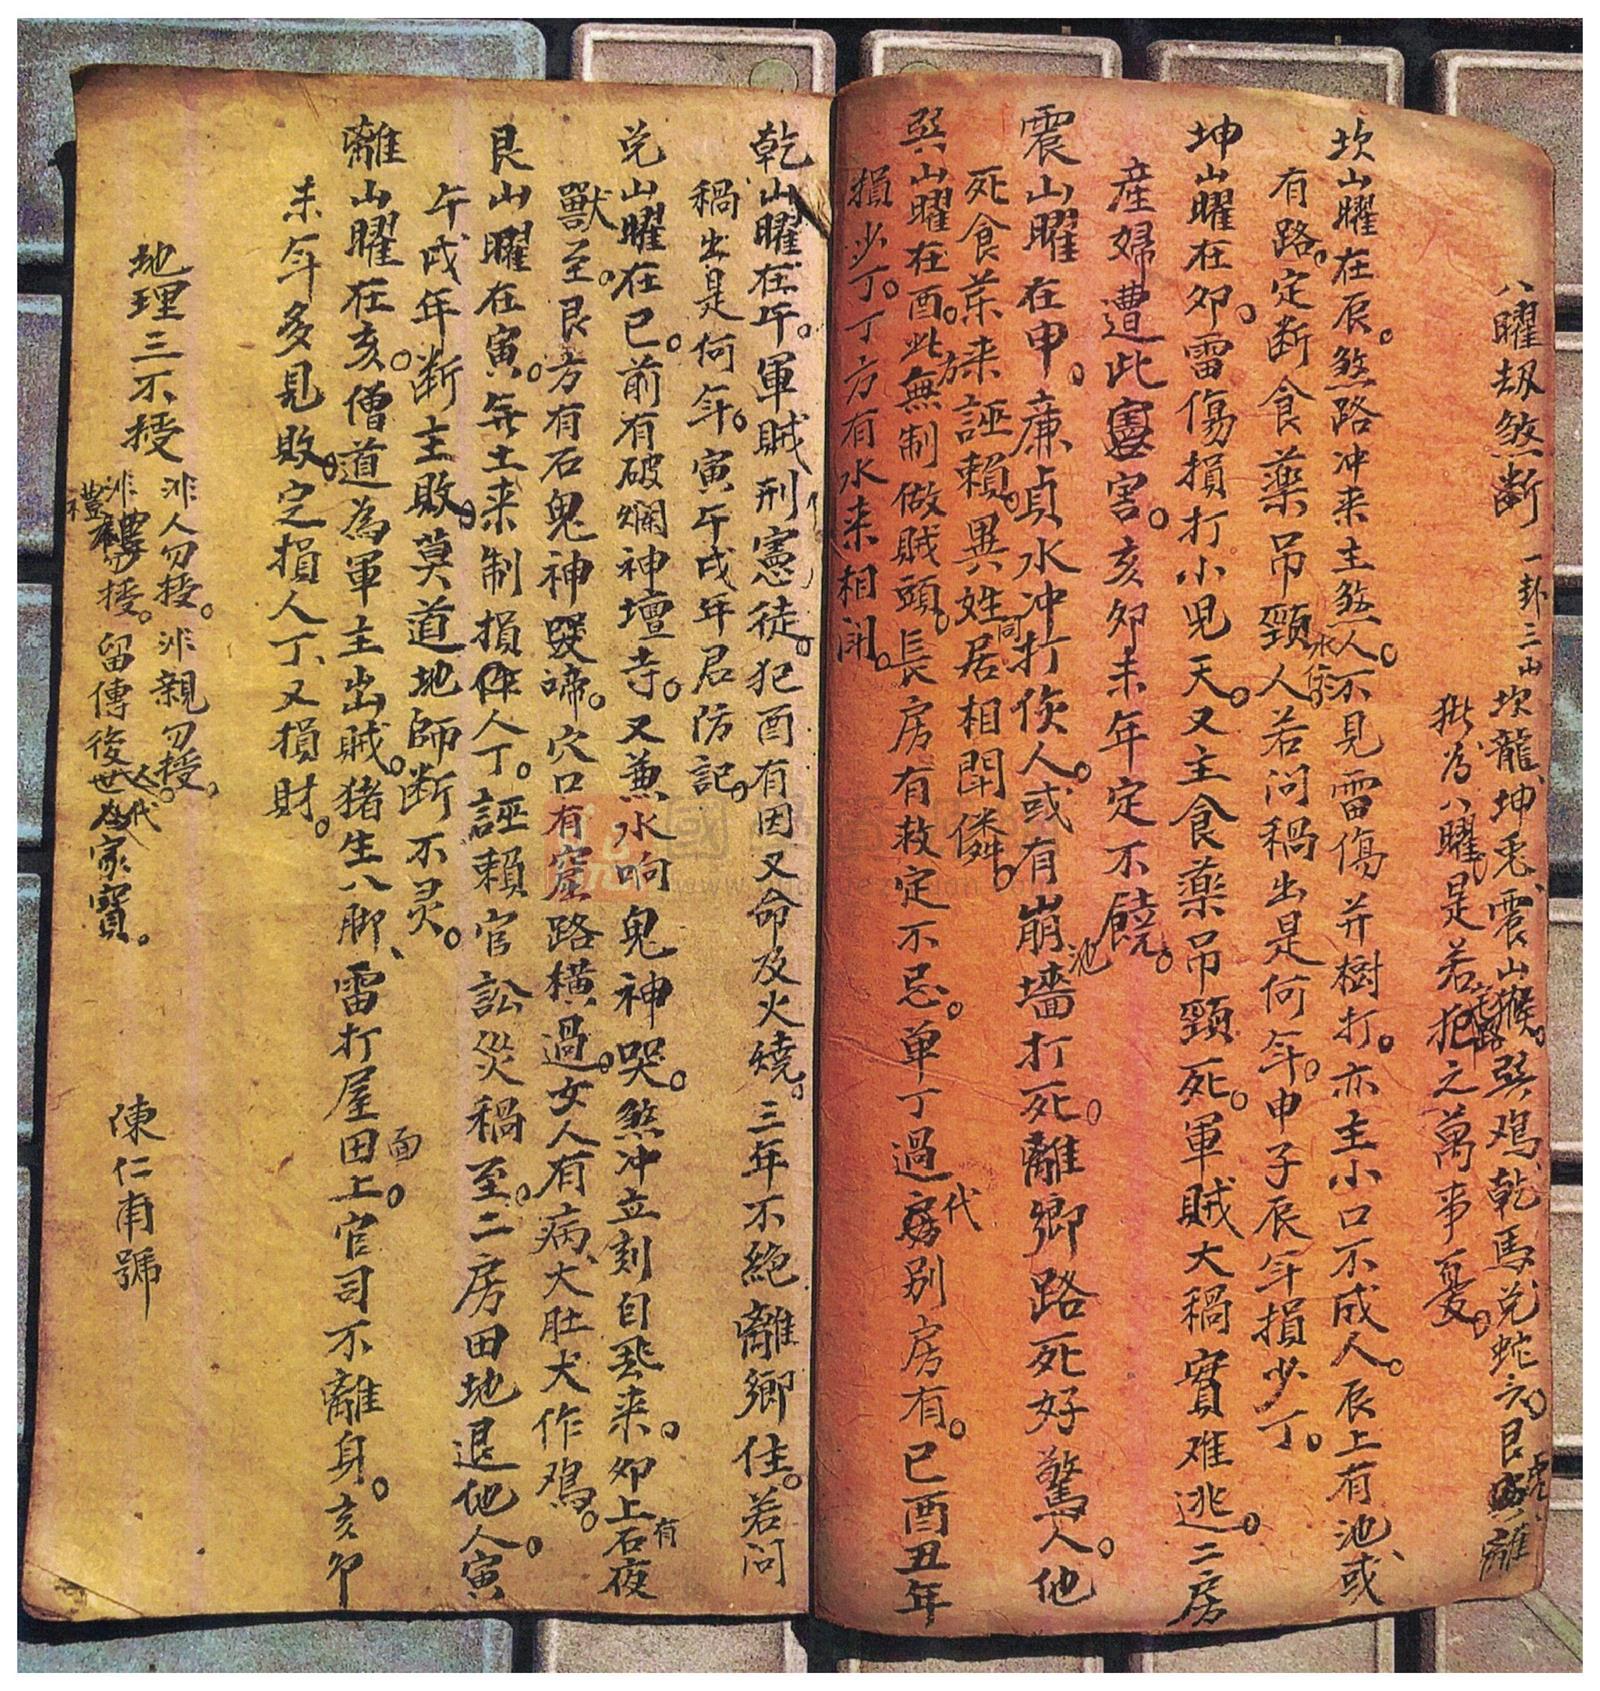 八曜刼煞断 一卦三山坎龍、坤兎、震山猴。巽鸡乾馬兌蛇。艮虎離
犯之萬事憂。
坎山曜在辰。煞路冲来主煞人。不見雷傷并樹打。亦主小口不成人。辰上有池或
有路。定断食藥吊頸人若问禍出是何年。申子辰年損少丁。
坤山曜在卯。雷傷損打小児夭。又主食藥吊頸死。軍賊大禍實难逃。二房
産婦遭此害。亥卯未年定不饒。
震山曜在申。廉貞水冲打傷人。或有崩墻打死。離鄉路死好驚人。他
死食茶来誣賴。異姓同居相閗
巽山曜在酉。此方無制做賊頭。長房有救定不忌。单丁過代别房有。巳酉丑年
損少丁。丁方有水来相闲。
乾山曜在午。軍賊刑憲徒。犯酉有因又命及火燒。三年不絶離鄉住。若问
禍出是何年。寅午戌年君防記。
兌山曜在巳。前有破爛神壇寺。又兼水响鬼神哭。煞冲立刻自来。卯上有石夜
獸至。艮方有石鬼神哭啼。穴口有窟路横過。女人有病、大肚犬作鸡。
艮山曜在寅。無土来制損人丁。誣賴官訟災禍至。二房田地退他人。寅
午戌年断主敗。莫道地師断不灵。
離山曜在亥。僧道為軍主出賊。猪生八脚、雷打屋面田上。官司不離身。亥卯
未年多見敗。定損人丁又損財。
地理三不授 非人勿授。非親勿授。
非禮勿授。留傳後代為家寳。
陳仁甫號